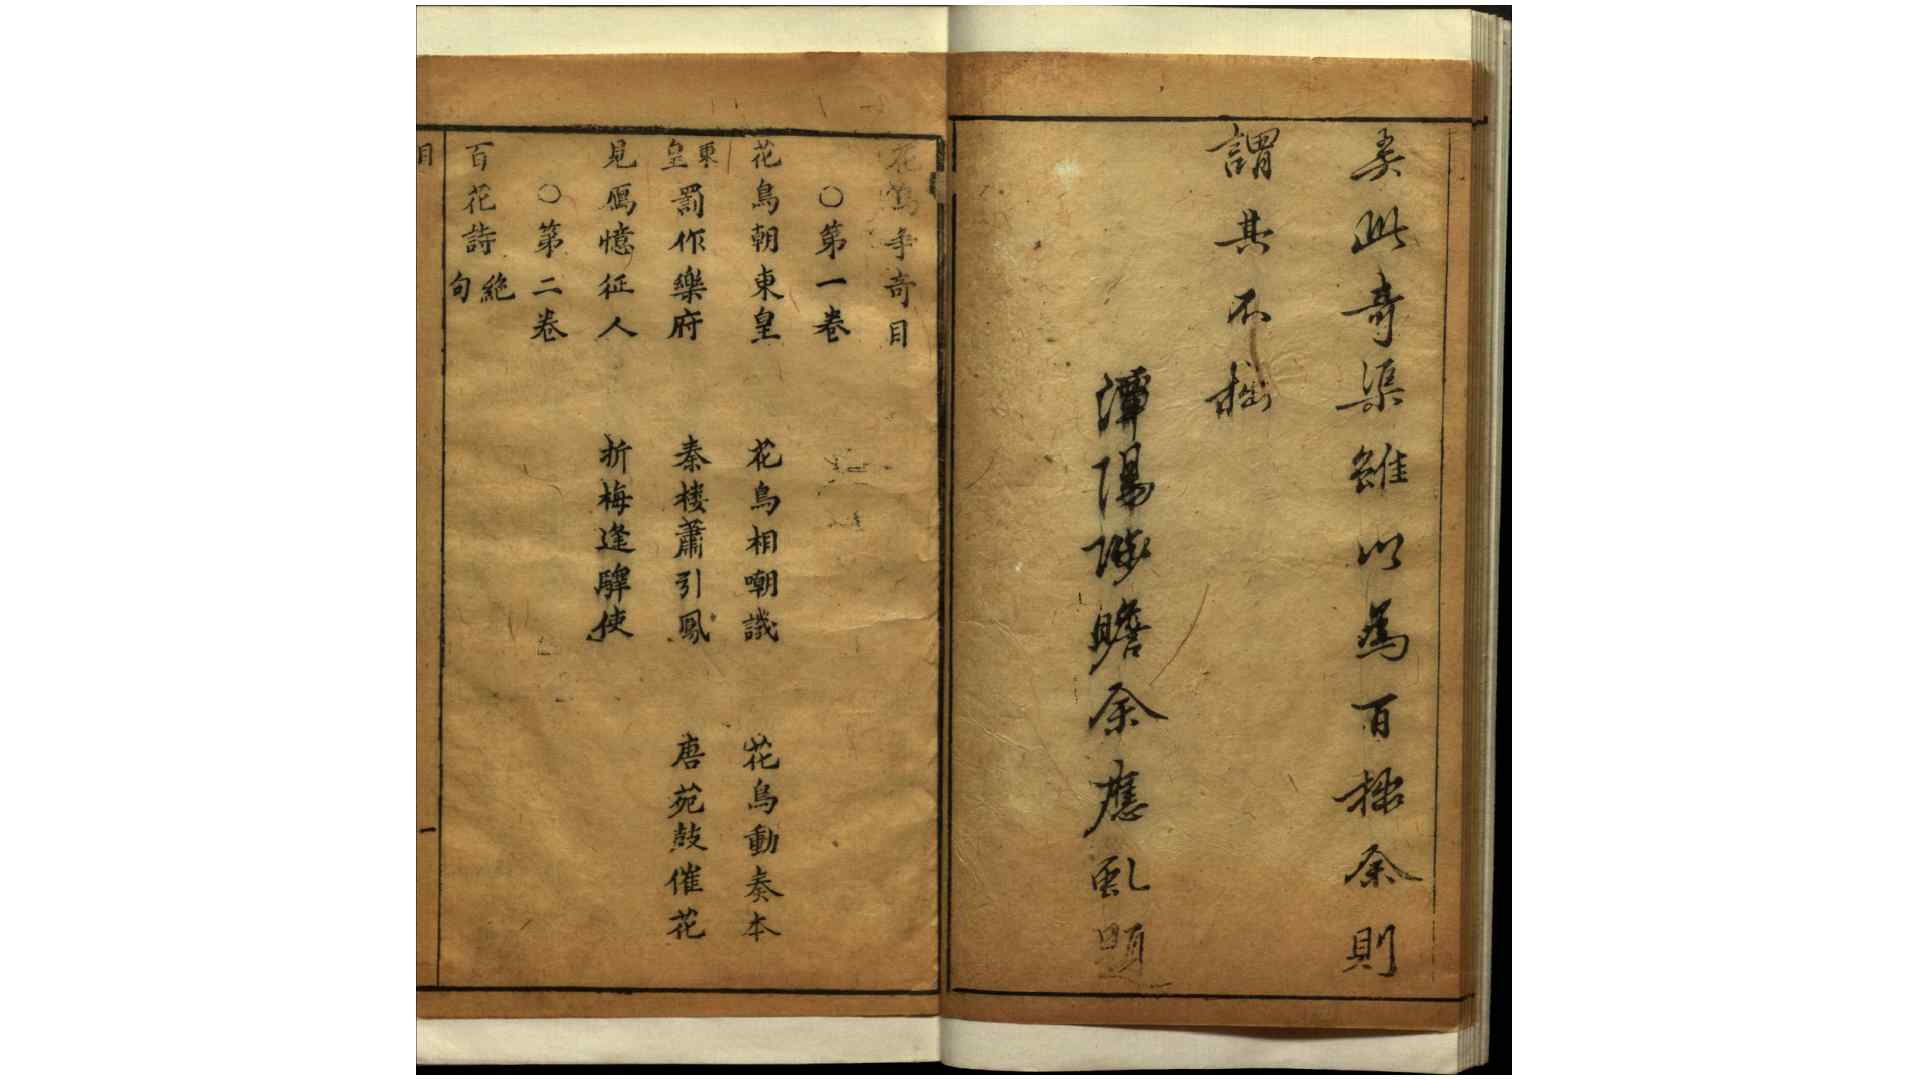 奏此奇渠雖以為百拙余則
謂其不拙
潭陽陟瞻余應虬題
花鳥争奇目
○第一卷
花鳥朝東皇 花鳥相嘲譏 花鳥動奏本
東皇罰作樂府 秦楼蕭引鳳 唐苑鼓催花
見鴈憶征人 折梅逢驛使
○第二卷
百花詩絶句
目 一